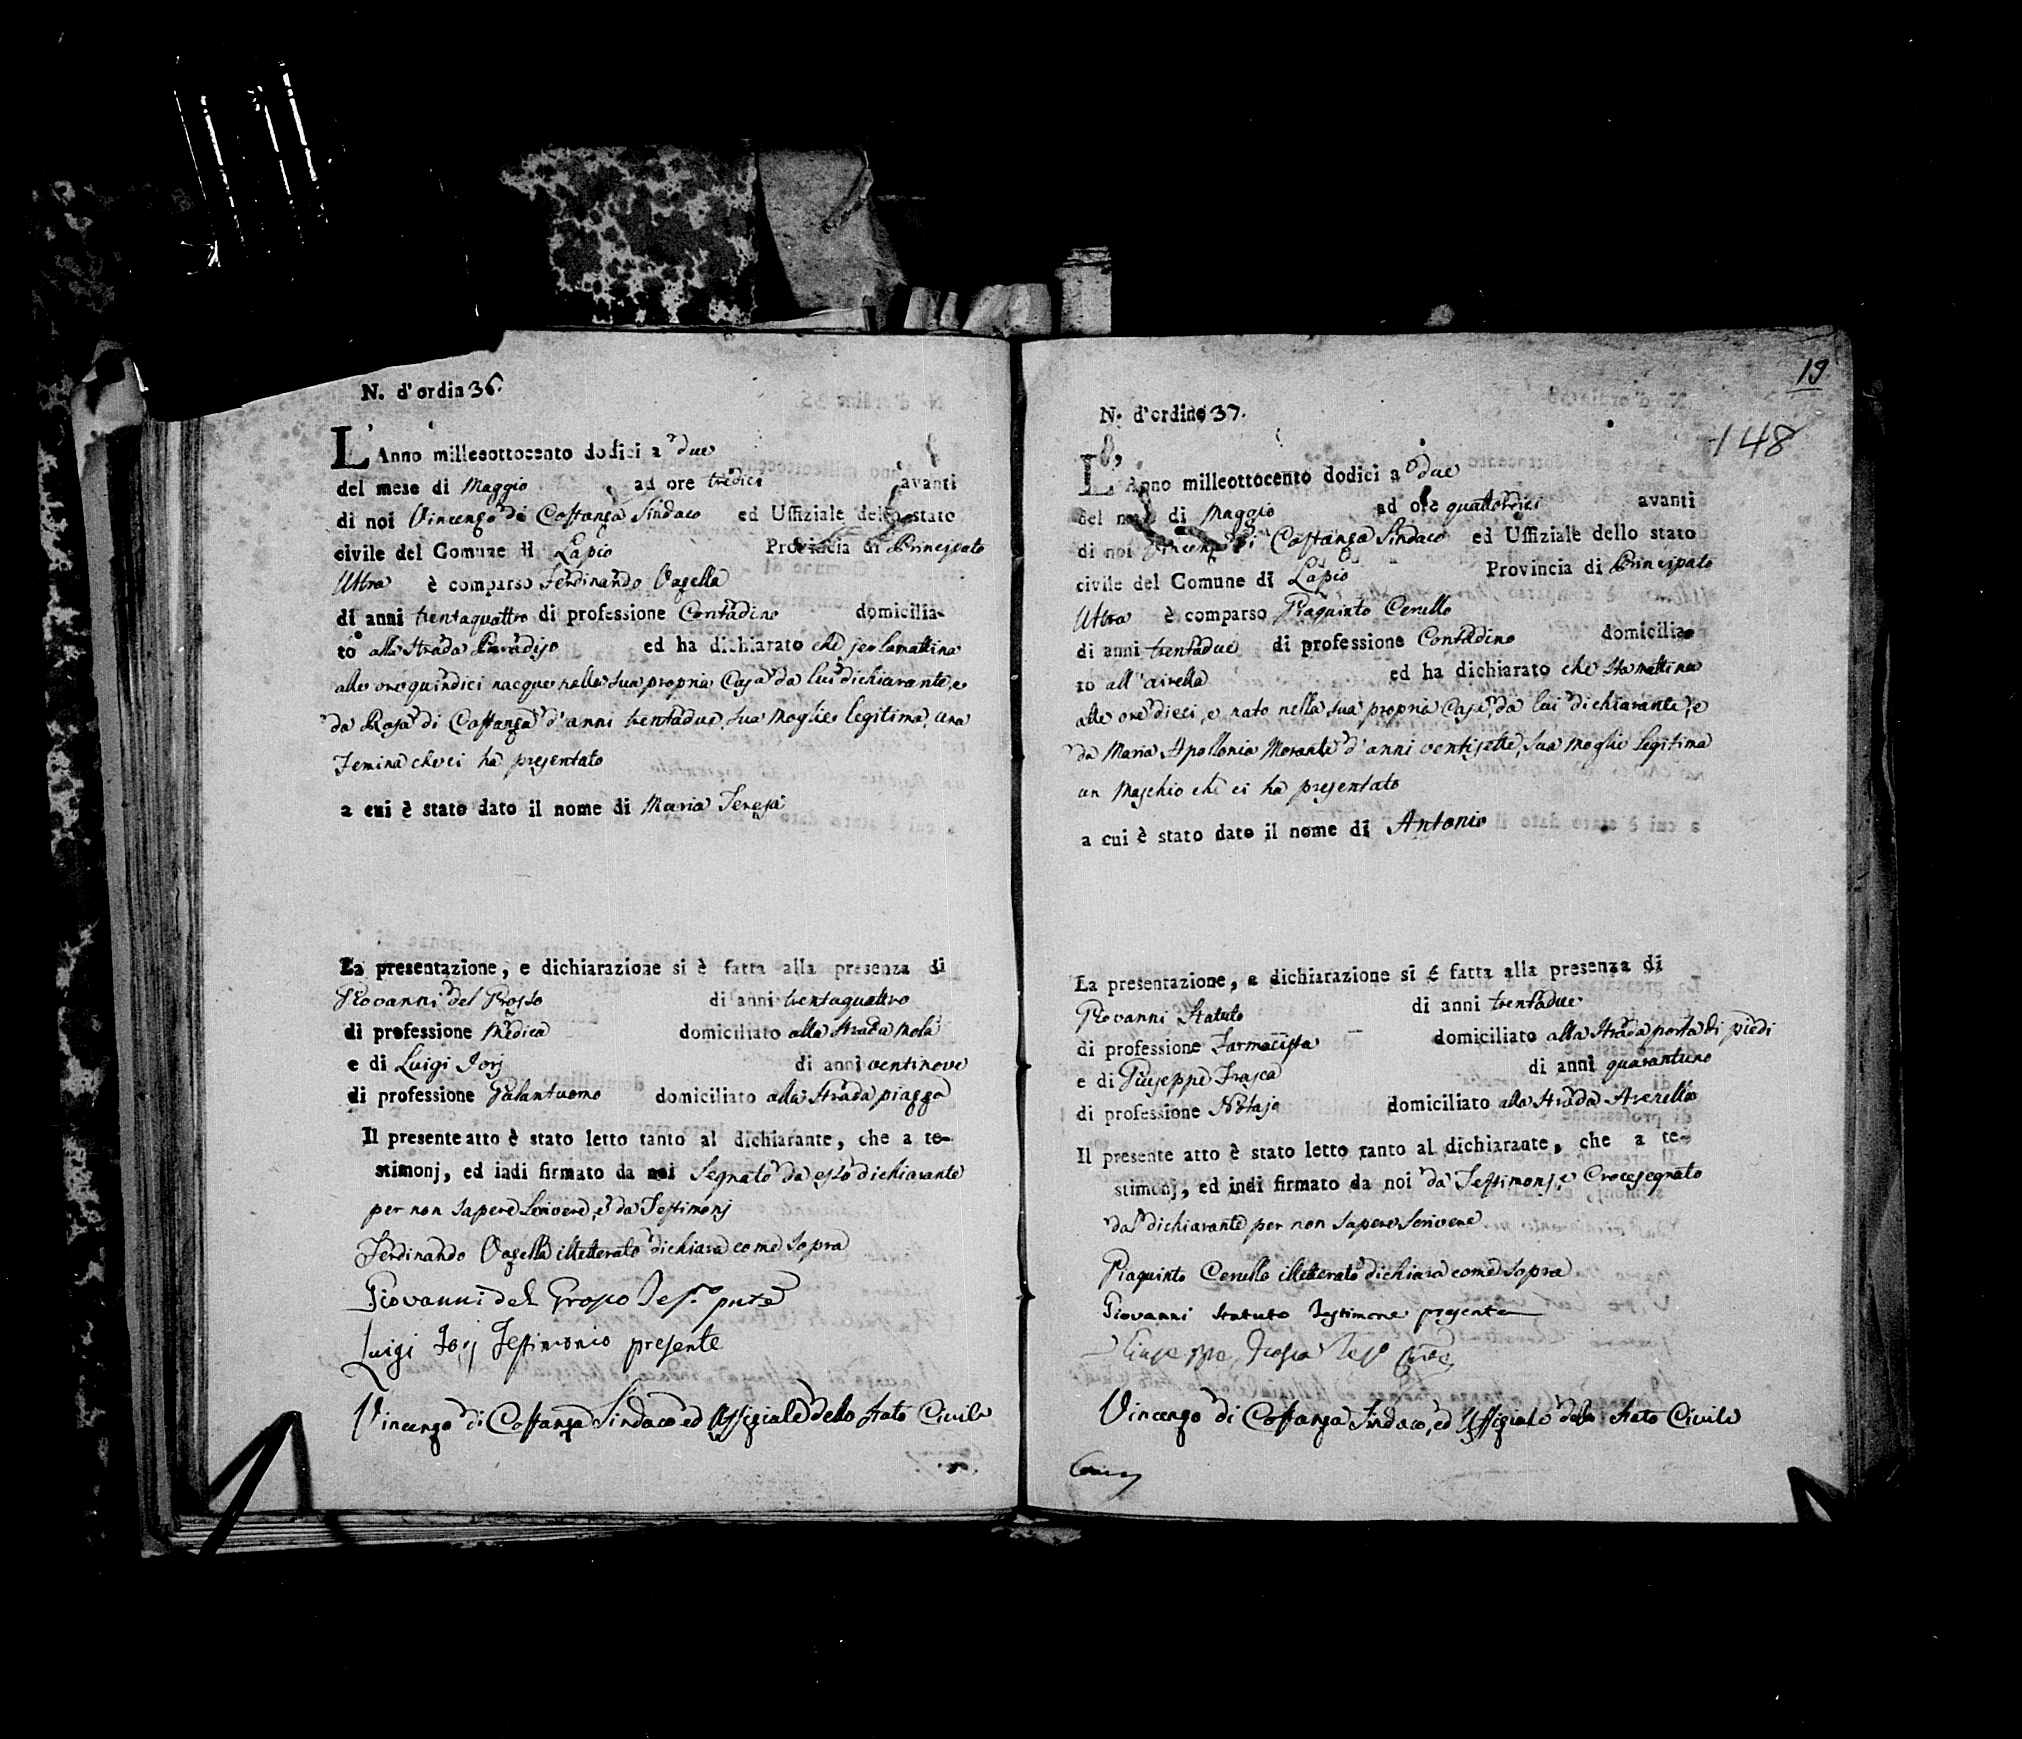 N. d'ordin 36.
L'Anno milleottocento dodici a due
del mese di Maggio ad ore tredici avanti
di noi Vincenzo di Costanza Sindaco ed Uffiziale dello stato
civile del Comune di Lapio Provincia di Principato
Ultra è comparso Ferdinando Vasella
di anni trentaquattro di professione Contadino domicilia-
to alla Strada Paradiso ed ha dichiarato che la mattina
alle ore quindici nacque nella sua propria Casa da lui dichiarante, e
da Rosa di Costanza d'anni trentadue sua Moglie legitima una
Femina che ci ha presentato
a cui è stato dato il nome di Maria Teresa
La presentazione, e dichiarazione si è fatta alla presenza di
Giovanni del Grosso di anni trentaquattro
di professione Medico domiciliato alla Strada Mola
e di Luigi Jorj di anni ventinove
di professione Galantuomo domiciliato alla Strada piazza
Il presente atto è stato letto tanto al dichiarante, che a te-
stimonj, ed indi firmato da noi Segnato da esso dichiarante
per non sapere Scrivere, e da Testimonj
Ferdinando Vasella illetterato dichiara come sopra
Giovanni del Grosso Tes.o pnte
Luigi Jorj Testimonio presente
Vincenzo di Costanza Sindaco ed Uffiziale dello Stato Civile
19
148
N. d'ordine 37.
L'Anno milleottocento dodici a due
del mese di Maggio ad ore quattordici avanti
di noi Vincenzo di Costanza Sindaco ed Uffiziale dello stato
civile del Comune di Lapio Provincia di Principato
Ultra è comparso Piaquinto Cerullo
di anni trentadue di professione Contadino domicilia-
to all'airella ed ha dichiarato che stamattina
alle ore dieci, e nato nella sua propria Casa, da lui dichiarante, e
da Maria Apollonia Morante d'anni ventisette, sua Moglie Legitima
un Maschio che ci ha presentato
a cui è stato dato il nome di Antonio
La presentazione, e dichiarazione si è fatta alla presenza di
Giovanni Statuto di anni trentadue
di professione Farmacista domiciliato alla Strada porta di piedi
e di Giuseppe Frasca di anni quarantuno
di professione Notajo domiciliato alla Strada Averella
Il presente atto è stato letto tanto al dichiarante, che a te-
stimonj, ed indi firmato da noi da Testimonj, e Crocesegnato
dal dichiarante per non sapere Scrivere
Piaquinto Cerullo illetterato dichiara come sopra
Giovanni Statuto Testimone presente
Giuseppe Frasca
Vincenzo di Costanza Sindaco, ed Uffiziale dello Stato Civile